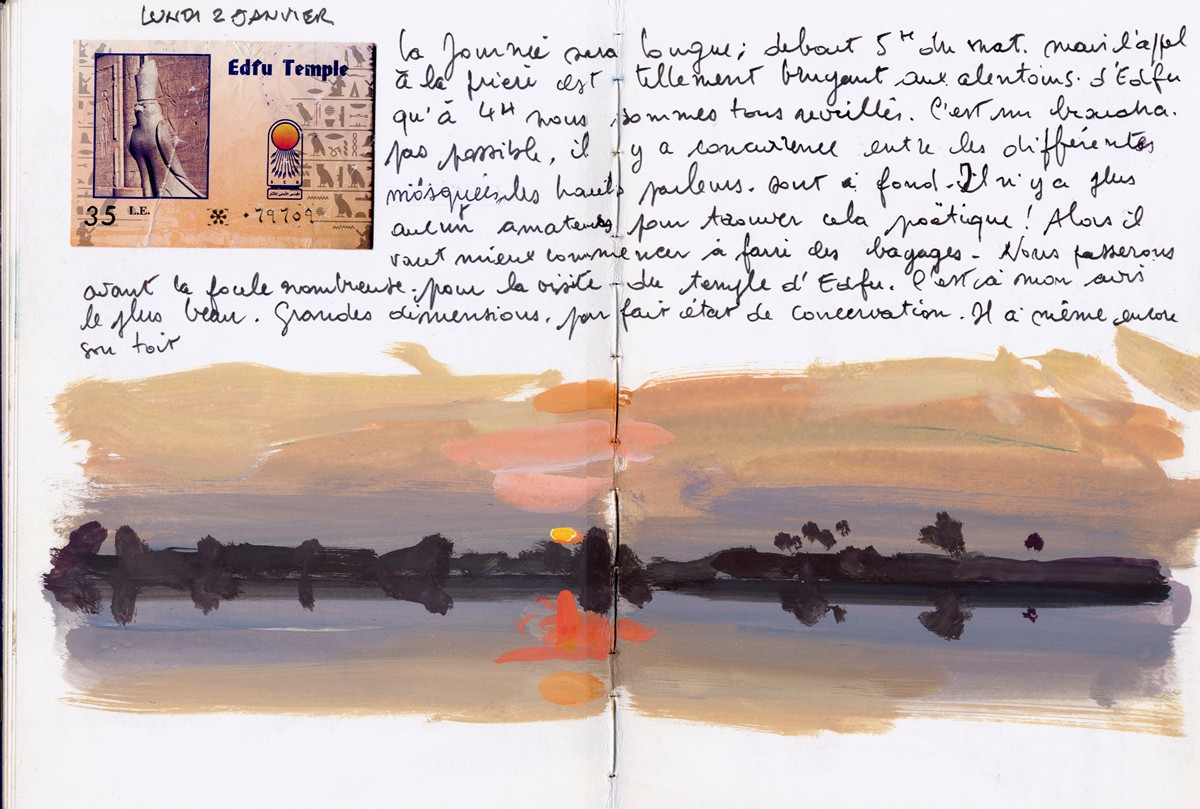 LUNDI 2 JANVIER
Edfu Temple
35 L.E.
79709
la Journée sera longue; debout 5H du mat. mais l'appel
à la prière est tellement bruyant aux alentours d'Edfu
qu'à 4H nous sommes tous reveillés. C'est un brouaha.
pas possible, il y a concurrence entre les différentes
mosquées, les hauts parleurs sont à fond. Il n'y a plus
aucun amateurs pour trouver cela poëtique! Alors il
vaut mieux commencer à faire des bagages - Nous passerons
avant la foule nombreuse. pour la visite du temple d'Edfu. C'est à mon avis
le plus beau. Grandes dimensions. parfait état de concervation. Il a même encore
son toit